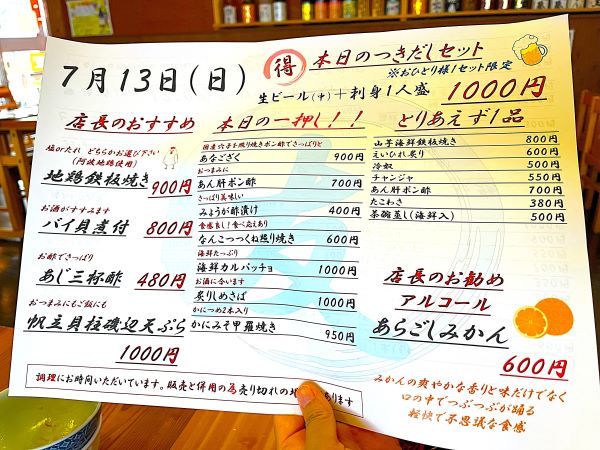 7月13日(日)
得 本日のつきだしセット
※おひとり様1セット限定
生ビール(中)+刺身1人盛 1000円
店長のおすすめ
塩orたれ どちらかお選び下さい
(阿波地鶏使用)
地鶏鉄板焼き 900円
お酒がすすみます
バイ貝煮付 800円
お酢でさっぱり
あじ三杯酢 480円
おつまみにもご飯にも
帆立貝柱磯辺天ぷら
1000円
本日の一押し!!
国産穴子を照り焼きポン酢でさっぱりと
あなござく 900円
おつまみに
あん肝ポン酢 700円
さっぱり美味しい
みょうが酢漬け 400円
食感良し!食べ応えあり
なんこつつくね照り焼き 600円
海鮮たっぷり
海鮮カルパッチョ 1000円
お酒に合います
炙りしめさば 1000円
かにつめ2本入り
かにみそ甲羅焼き 950円
とりあえず1品
山芋海鮮鉄板焼 800円
えいひれ炙り 600円
冷奴 500円
チャンジャ 550円
あん肝ポン酢 700円
たこわさ 380円
茶碗蒸し(海鮮入) 500円
店長のお勧め
アルコール
あらごしみかん
600円
みかんの爽やかな香りと味だけでなく
口の中でつぶつぶが踊る
軽快で不思議な食感
調理にお時間いただいています。販売と併用の為売り切れの場 あります